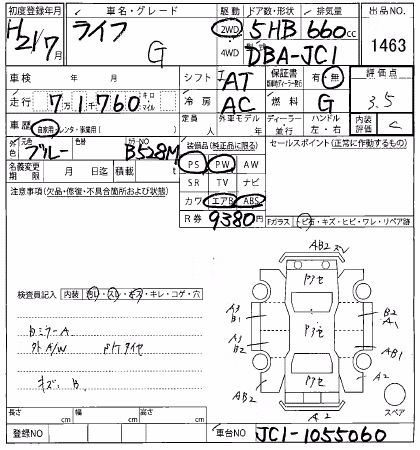 初度登録年月 車名・グレード 駆動 ドア数・形状 排気量 出品NO
H21/7月 ライフ G 2WD 4WD 5HB 660cc 1463
型式 DBA-JC1
車検 年 月 シフト AT 保証書 有・無 評価点
走行 7万1千760 キロ マイル 冷房 AC 燃料 G 3.5
車歴 自家用・レンタ・事業用( ) 定員 人 外車モデル 年 ディーラー 並行 ハンドル 左・右 内装評価 C
外色 元色 ブルー 色替 カラーNO B528M 装備品(純正品に限る) セールスポイント(正常に作動するもの)
PS PW AW
名義変更期限 月 日迄 積載 t SR TV ナビ
注意事項(欠品・修復・不具合箇所および状態) カワ エアB ABS
R券 9380円 Fガラス トビ石・キズ・ヒビ・ワレ・リペア跡
A2 B2
検査員記入 内装 汚レ・スレ・キズ・キレ・コゲ・穴
A3 B1 B2 A1
A3 B2 AB1
AB2 A2
キズ B
A2 スペア
長さ cm 幅 cm 高さ cm
登録NO 車台NO JC1-1055060